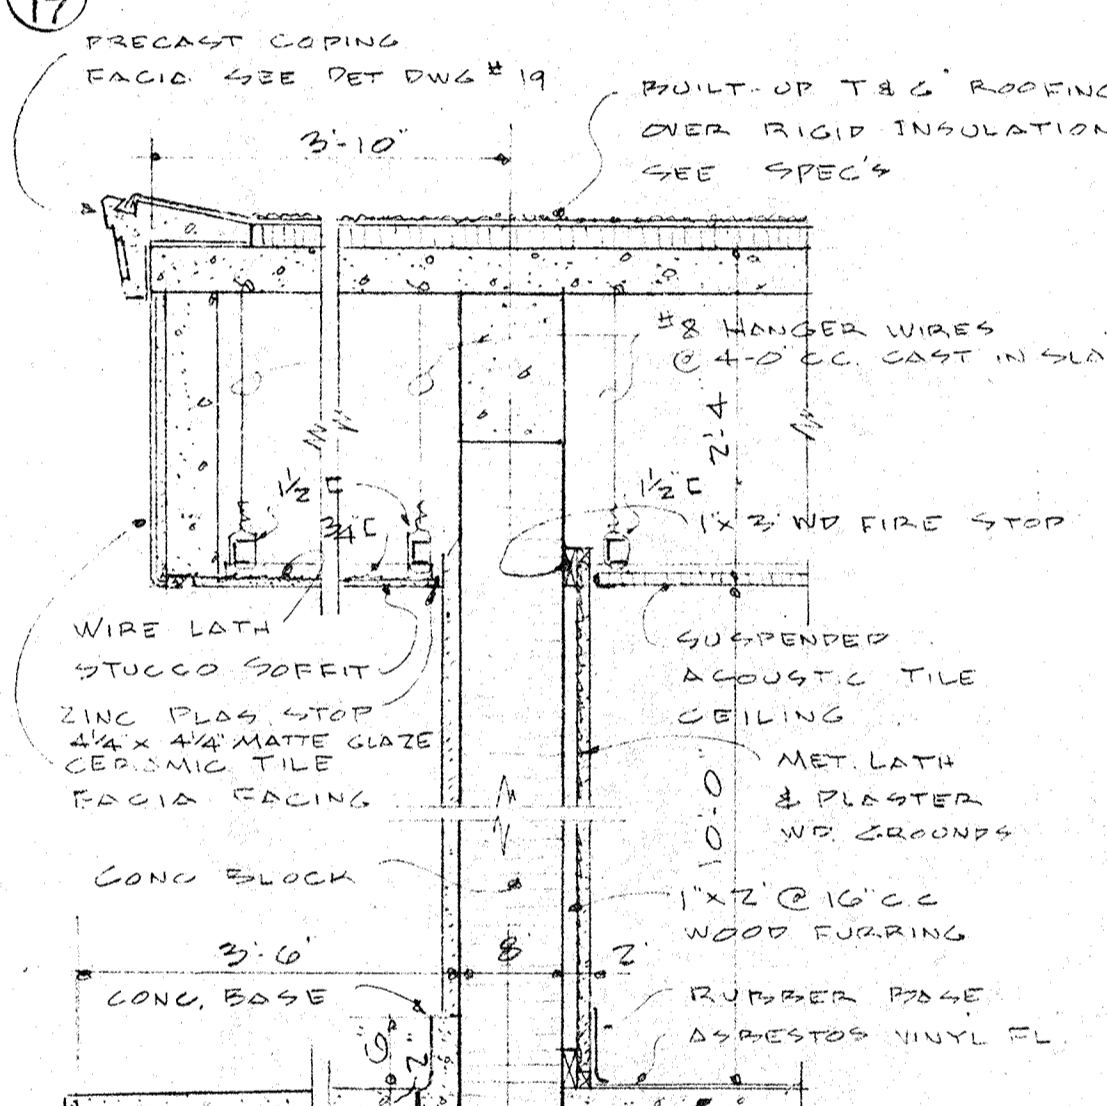 17
PRECAST COPING
FACIA SEE DET DWG # 19
BUILT-UP T & G ROOFING
OVER RIGID INSULATION
SEE SPEC'S
3'-10"
#8 HANGER WIRES
@ 4-0" C.C. CAST IN SLA
2'-4
1½" [
¾" [
1½" [
1"x 3" WD FIRE STOP
WIRE LATH
STUCCO SOFFIT
ZINC PLAS. STOP
4¼" x 4¼" MATTE GLAZE
CERAMIC TILE
FACIA FACING
SUSPENDED
ACOUSTIC TILE
CEILING
MET. LATH
& PLASTER
WD. GROUNDS
10'-0"
CONC BLOCK
1"x 2" @ 16" C.C
WOOD FURRING
3'-6"
8"
2"
CONC. BASE
6"
2"
RUBBER BASE
ASBESTOS VINYL FL.